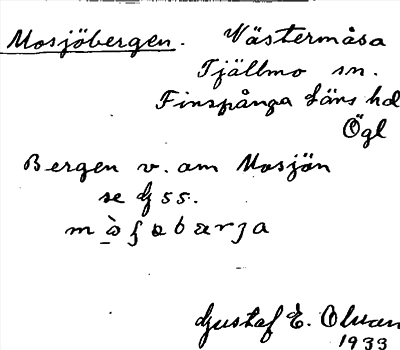 Mosjöbergen. Västermåsa
Tjällmo sn.
Finspånga läns hd
Ögl
Bergen v. om Mosjön
se
m
Gustaf E. Olsson
1933